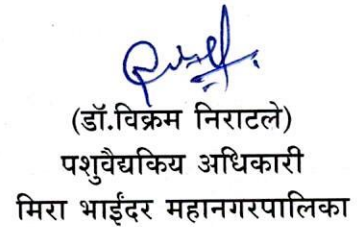 (डॉ.विक्रम निराटले)
पशुवैद्यकिय अधिकारी
मिरा भाईंदर महानगरपालिका